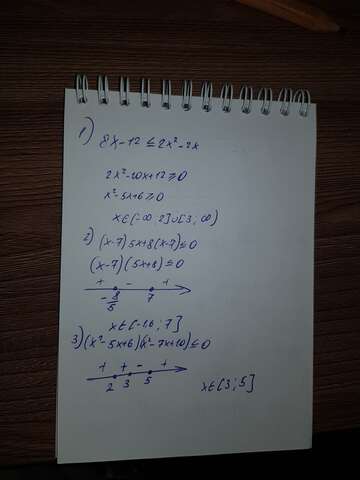 1) 8x-12 ≤ 2x²-2x
2x²-10x+12 ≥ 0
x²-5x+6 ≥ 0
x∈(-∞; 2]∪[3; ∞)
2) (x-7)5x+8(x-7) ≤ 0
(x-7)(5x+8) ≤ 0
+ - +
-8/5 7
x∈[-1.6; 7]
3) (x²-5x+6)(x²-7x+10) ≤ 0
+ + - +
2 3 5
x∈[3; 5]